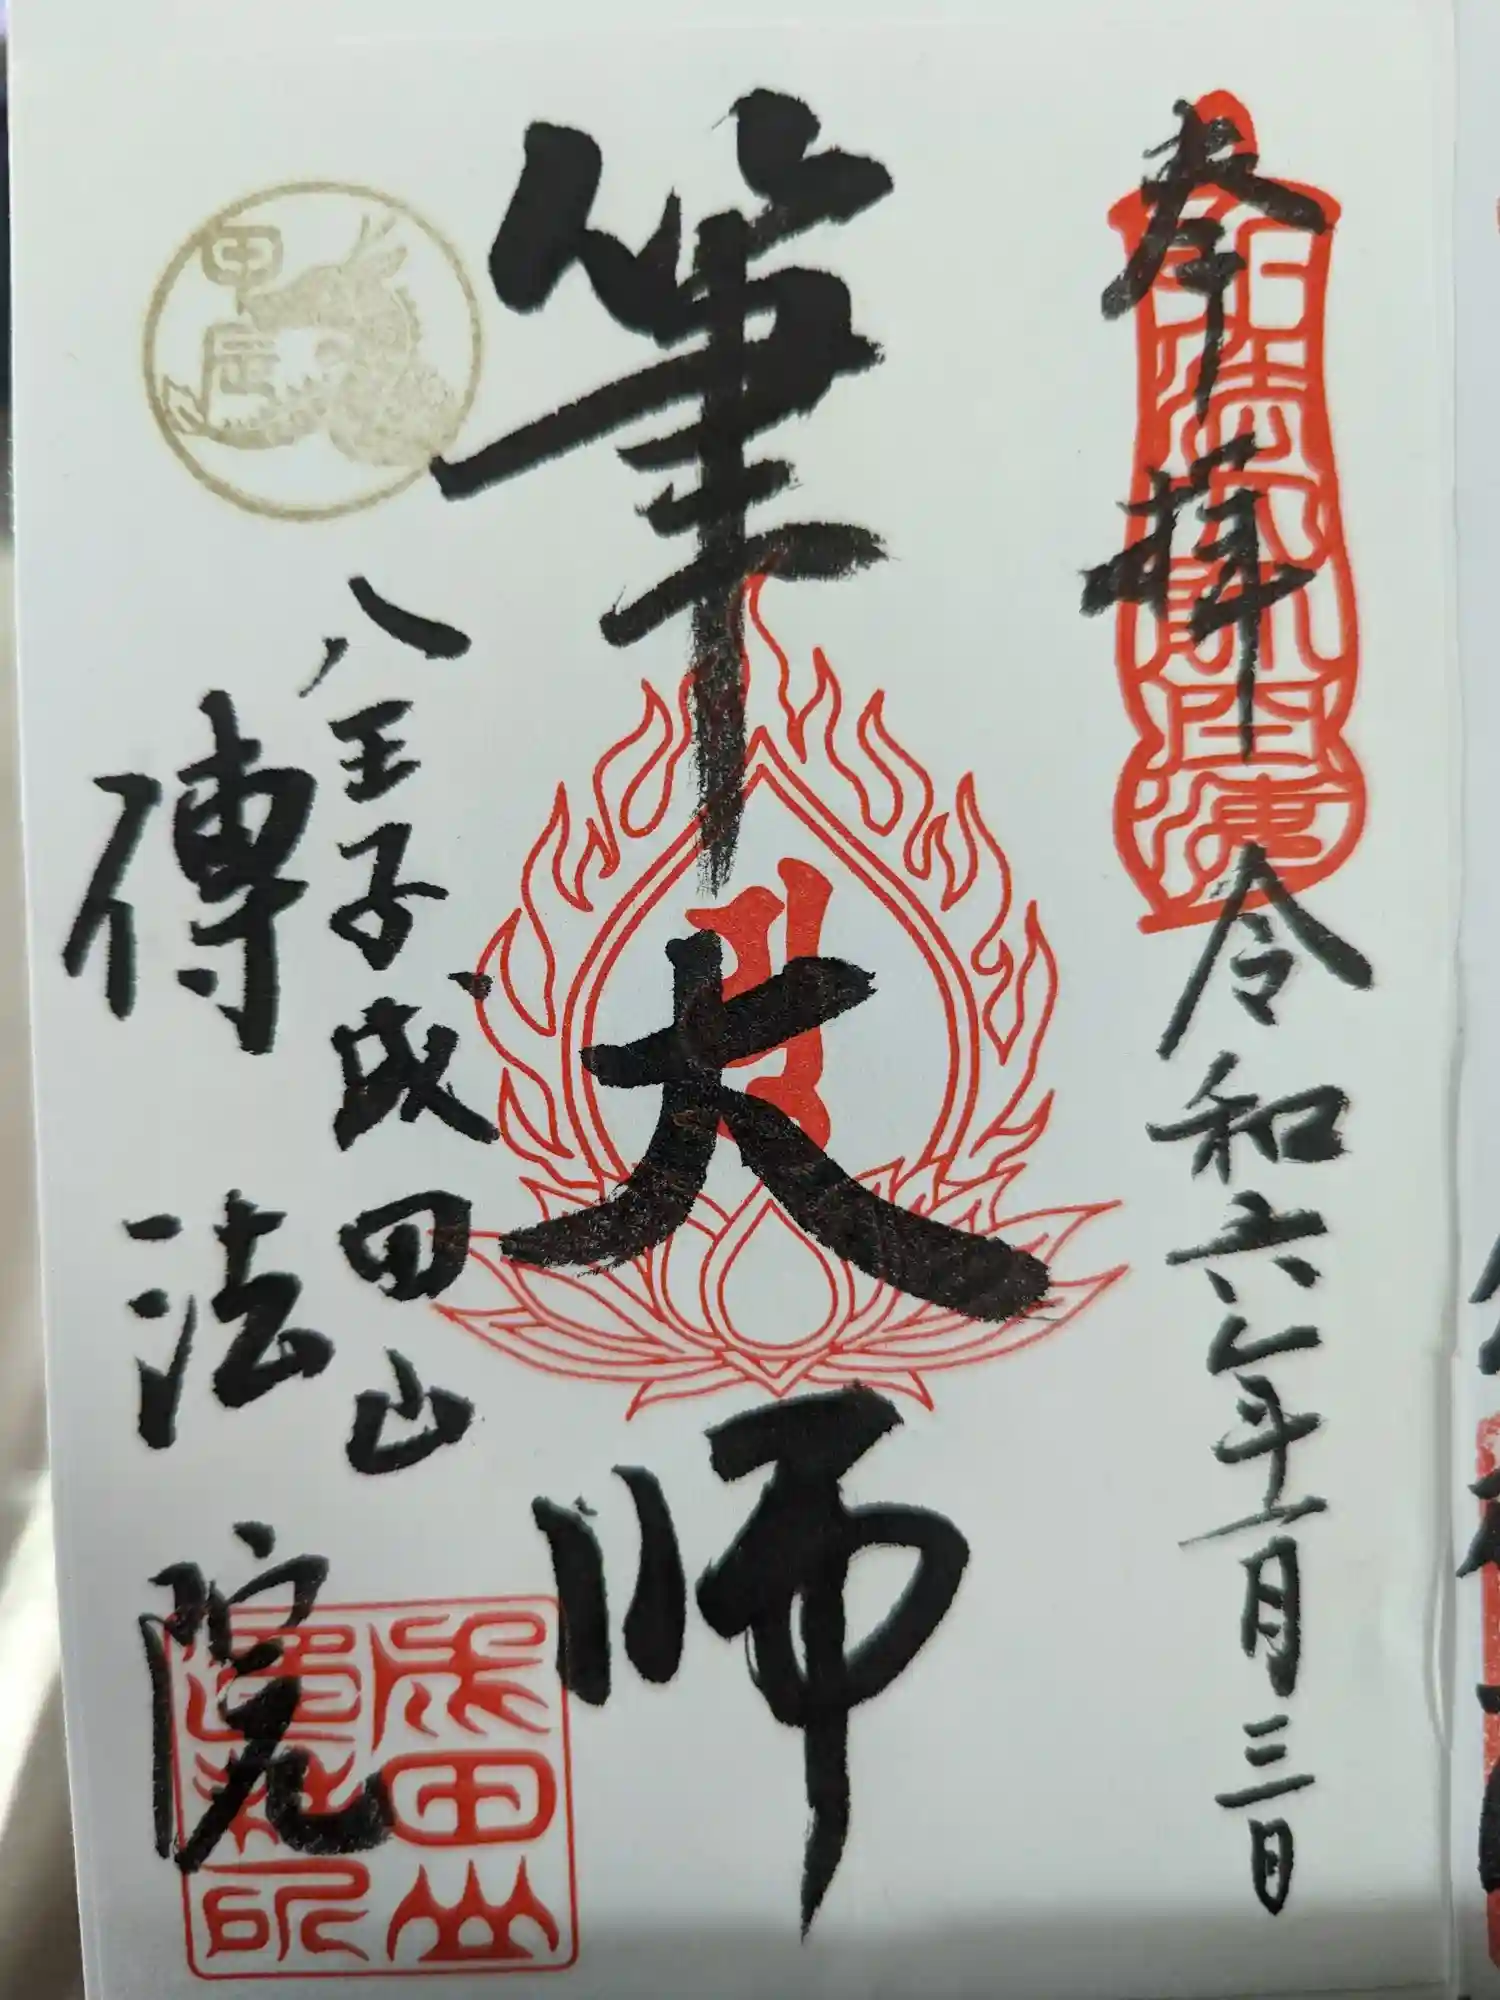 奉拝
令和六年十一月三日
筆大師
八王子成田山
傳法院
甲辰
成田山